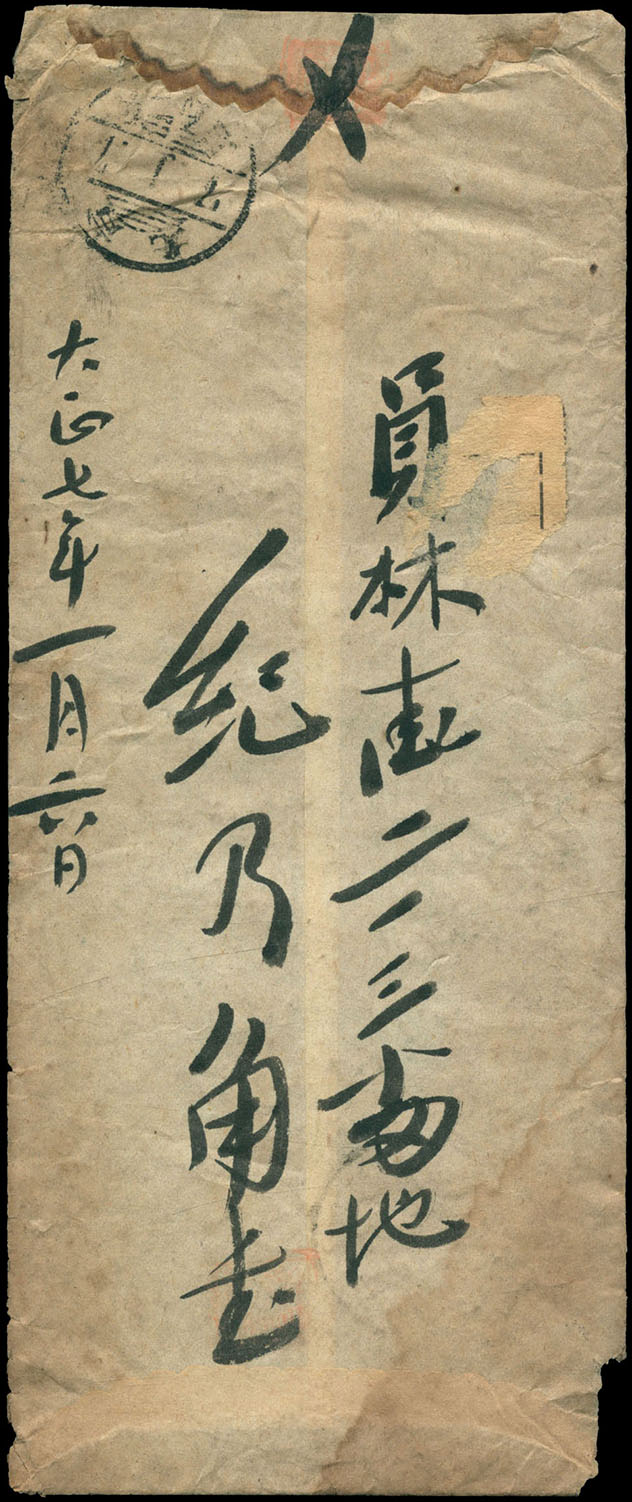 員林街二一三番地
紀乃角
大正七年一月六日